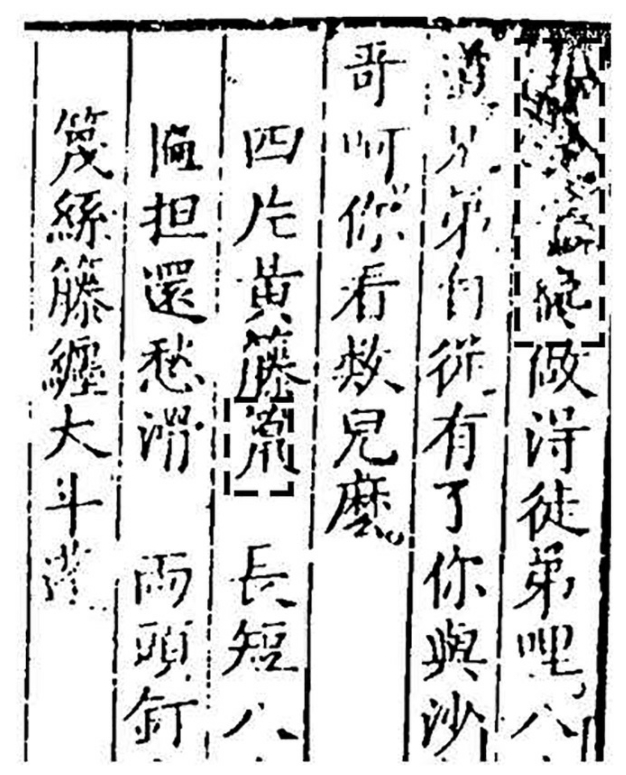 紀做得徒弟哩八
道兄弟自從有了你與沙
哥呵你看数兒麽
四片黃藤 長短八
匾担還愁滑 兩頭釘
篾絲藤纏大斗蓬